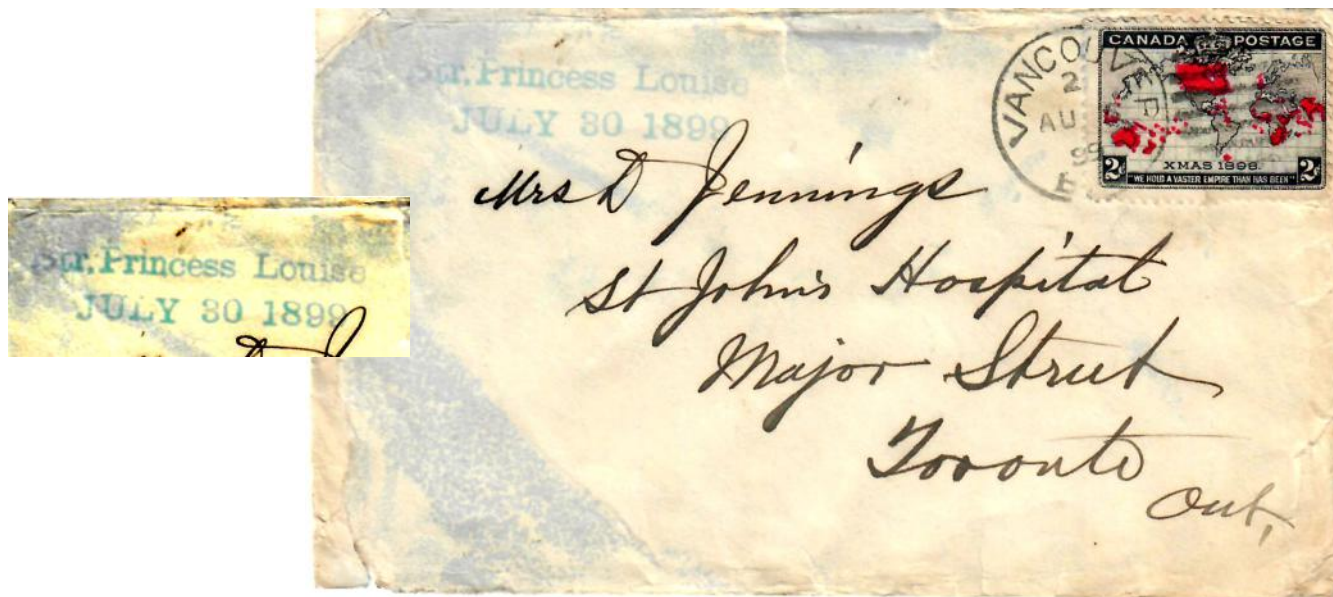 Str. Princess Louise
JULY 30 1899
Str. Princess Louise
JULY 30 1899
VANCOUVER
2
AU
99
B
CANADA POSTAGE
XMAS 1898
2c 2c
"WE HOLD A VASTER EMPIRE THAN HAS BEEN"
Mrs D Jennings
St John's Hospital
Major Street
Toronto
Ont,